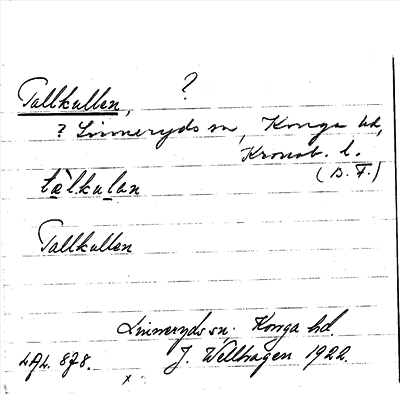 ?
Tallkullen,
? Linneryds sn, Konga hd,
Kronob. l.
(D. F.)
tàlkulan
Tallkullen
Linneryds sn. Konga hd.
J. Wellhagen 1922.
LAL. 878.
x